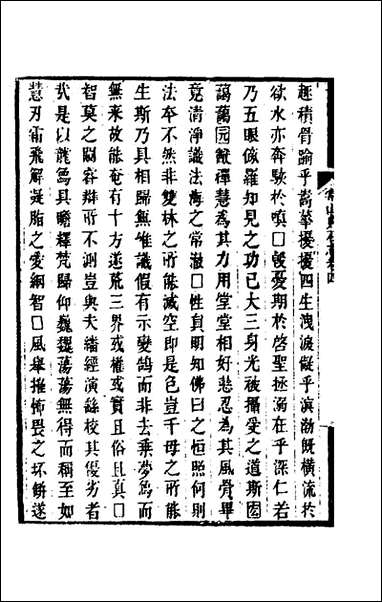 趣積骨踰乎嵩華擾擾四生洩淚擬乎滇渤既橫流於
欲水亦奔駛於嗔□殷憂期於啓聖拯溺在乎深仁若
乃五眼俢羅知見之功已大三身光被攝受之道斯圎
藹藹园猷禪慧為其力用堂堂相好慈忍為其風骨畢
竟清淨議法海之常澈□性真明知佛日之恒照何則
法夲不然非雙林之所能滅空即是色豈千母之所能
生斯乃具相歸無惟識假有示變鵠而非去乗夢爲而
無来故能奄有十方遮荒三界或權或實且俗且真□
智莫之闚容辯所不測豈與夫繙經演緐校其優劣者
㢤是以龍爲具瞻釋梵歸仰巍巍蕩蕩無得而稱至如
慧刃霜飛解凝脂之愛網智□風舉摧怖畏之坏餅遂